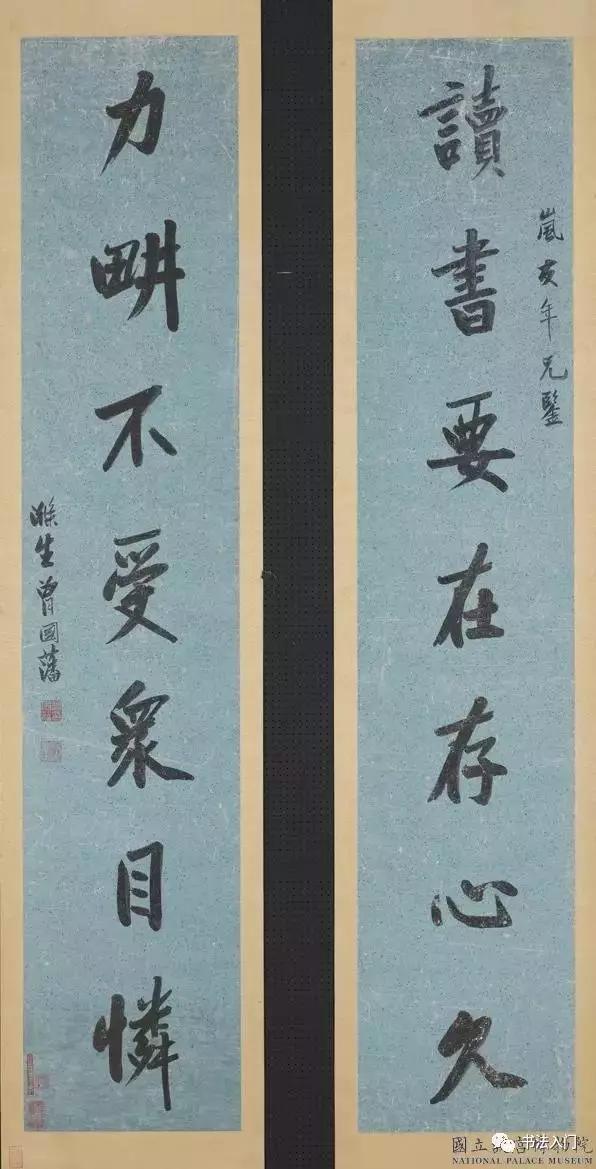 讀書要在存心久
嵐亥年兄鑒
力畊不受衆目憐
滌生曾國藩
書法入门
國立故宮博物院
NATIONAL PALACE MUSEUM